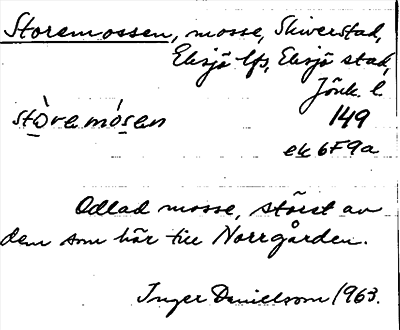 Storemossen, mosse, Skiverstad,
Eksjö lfs, Eksjö stad,
Jönk. l.
stòremósen 149
ek 6F9a
Odlad mosse, störst av
dem som hör till Norrgården.
Inger Danielsson 1963.